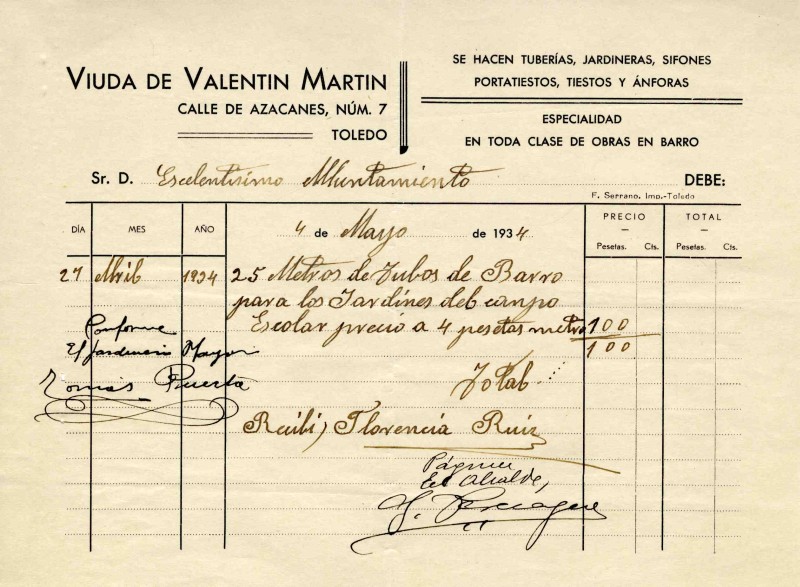 VIUDA DE VALENTIN MARTIN
CALLE DE AZACANES, NÚM. 7
TOLEDO
SE HACEN TUBERÍAS, JARDINERAS, SIFONES
PORTATIESTOS, TIESTOS Y ÁNFORAS
ESPECIALIDAD
EN TODA CLASE DE OBRAS EN BARRO
Sr. D. Escelentísimo Alluntamiento DEBE:
F. Serrano. Imp.-Toledo
DÍA MES AÑO 4 de Mayo de 1934 PRECIO TOTAL
Pesetas. Cts. Pesetas. Cts.
27 Abril 1934 25 Metros de Tubos de Barro
para los Jardines del canpo
Escolar precio a 4 pesetas metro 100
100
Total
Conforme
El Jardinero Mayor
Tomás Puerta
Recibí, Florencia Ruiz
Páguese
El Alcalde,